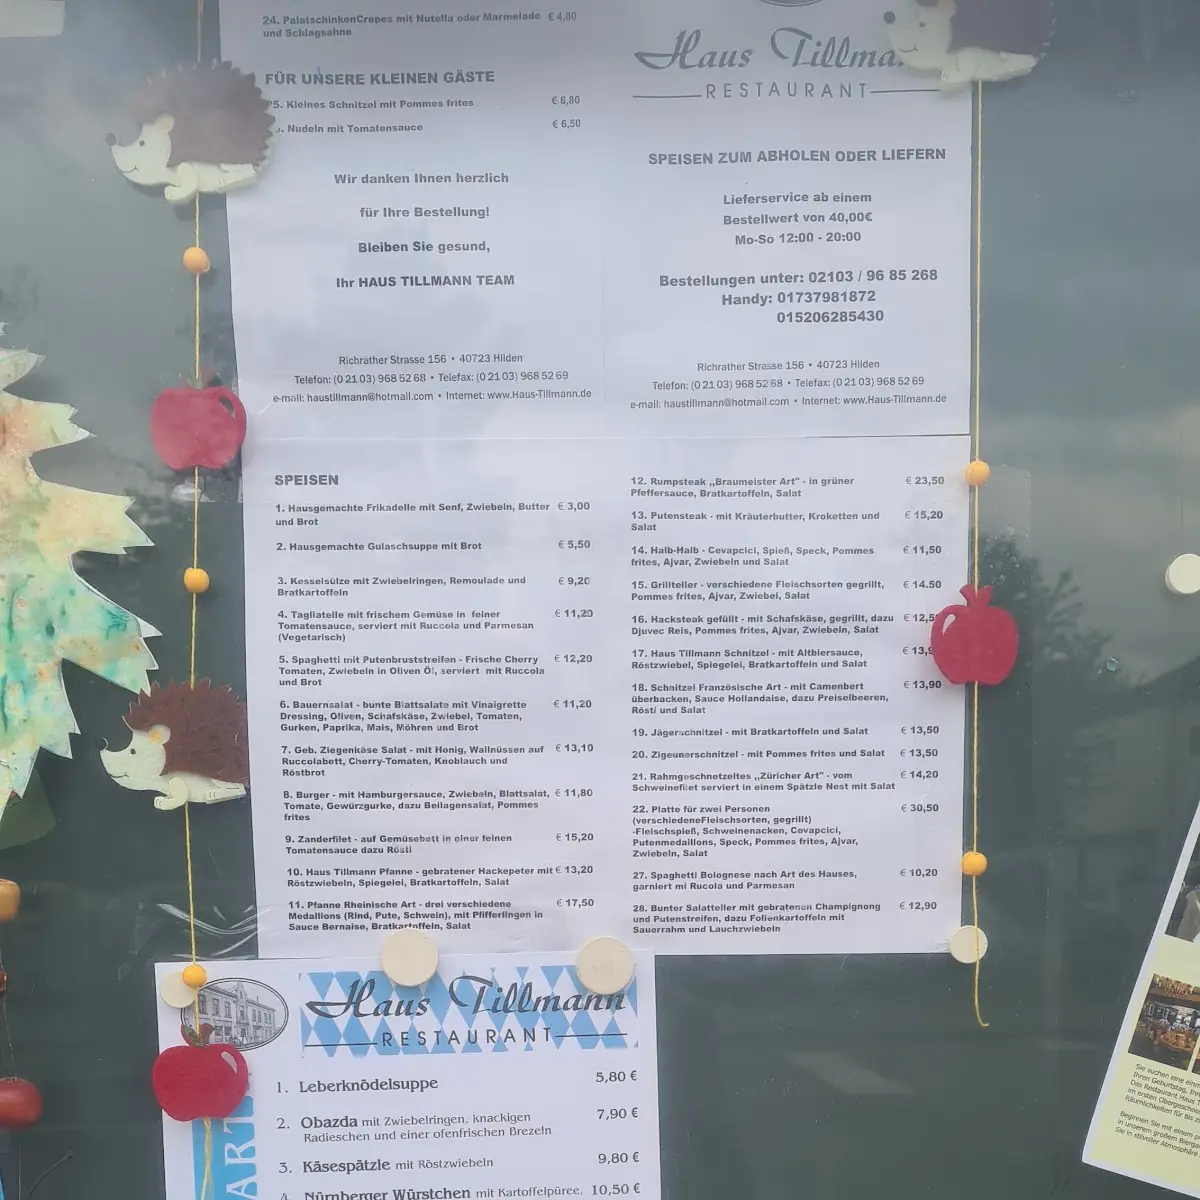 24. PalatschinkenCrepes mit Nutella oder Marmelade € 4,80
und Schlagsahne
FÜR UNSERE KLEINEN GÄSTE
25. Kleines Schnitzel mit Pommes frites € 6,80
. Nudeln mit Tomatensauce € 6,50
Wir danken Ihnen herzlich
für Ihre Bestellung!
Bleiben Sie gesund,
Ihr HAUS TILLMANN TEAM
Richrather Strasse 156 • 40723 Hilden
Telefon: (0 21 03) 968 52 68 • Telefax: (0 21 03) 968 52 69
e-mail: haustillmann@hotmail.com • Internet: www.Haus-Tillmann.de
Haus Tillma
RESTAURANT
SPEISEN ZUM ABHOLEN ODER LIEFERN
Lieferservice ab einem
Bestellwert von 40,00€
Mo-So 12:00 - 20:00
Bestellungen unter: 02103 / 96 85 268
Handy: 01737981872
015206285430
Richrather Strasse 156 • 40723 Hilden
Telefon: (0 21 03) 968 52 68 • Telefax: (0 21 03) 968 52 69
e-mail: haustillmann@hotmail.com • Internet: www.Haus-Tillmann.de
SPEISEN
1. Hausgemachte Frikadelle mit Senf, Zwiebeln, Butter € 3,00
und Brot
2. Hausgemachte Gulaschsuppe mit Brot € 5,50
3. Kesselsülze mit Zwiebelringen, Remoulade und € 9,20
Bratkartoffeln
4. Tagliatelle mit frischem Gemüse in feiner € 11,20
Tomatensauce, serviert mit Ruccola und Parmesan
(Vegetarisch)
5. Spaghetti mit Putenbruststreifen - Frische Cherry € 12,20
Tomaten, Zwiebeln in Oliven Öl, serviert mit Ruccola
und Brot
6. Bauernsalat - bunte Blattsalate mit Vinaigrette € 11,20
Dressing, Oliven, Schafskäse, Zwiebel, Tomaten,
Gurken, Paprika, Mais, Möhren und Brot
7. Geb. Ziegenkäse Salat - mit Honig, Wallnüssen auf € 13,10
Ruccolabett, Cherry-Tomaten, Knoblauch und
Röstbrot
8. Burger - mit Hamburgersauce, Zwiebeln, Blattsalat, € 11,80
Tomate, Gewürzgurke, dazu Beilagensalat, Pommes
frites
9. Zanderfilet - auf Gemüsebett in einer feinen € 15,20
Tomatensauce dazu Rösti
10. Haus Tillmann Pfanne - gebratener Hackepeter mit € 13,20
Röstzwiebeln, Spiegelei, Bratkartoffeln, Salat
11. Pfanne Rheinische Art - drei verschiedene € 17,50
Medallions (Rind, Pute, Schwein), mit Pfifferlingen in
Sauce Bernaise, Bratkartoffeln, Salat
12. Rumpsteak „Braumeister Art" - in grüner € 23,50
Pfeffersauce, Bratkartoffeln, Salat
13. Putensteak - mit Kräuterbutter, Kroketten und € 15,20
Salat
14. Halb-Halb - Cevapcici, Spieß, Speck, Pommes € 11,50
frites, Ajvar, Zwiebeln und Salat
15. Grillteller - verschiedene Fleischsorten gegrillt, € 14.50
Pommes frites, Ajvar, Zwiebel, Salat
16. Hacksteak gefüllt - mit Schafskäse, gegrillt, dazu € 12,5
Djuvec Reis, Pommes frites, Ajvar, Zwiebeln, Salat
17. Haus Tillmann Schnitzel - mit Altbiersauce, € 13,9
Röstzwiebel, Spiegelei, Bratkartoffeln und Salat
18. Schnitzel Französische Art - mit Camenbert € 13,90
überbacken, Sauce Hollandaise, dazu Preiselbeeren,
Rösti und Salat
19. Jägerschnitzel - mit Bratkartoffeln und Salat € 13,50
20. Zigeunerschnitzel - mit Pommes frites und Salat € 13,50
21. Rahmgeschnetzeltes „Züricher Art" - vom € 14,20
Schweinefilet serviert in einem Spätzle Nest mit Salat
22. Platte für zwei Personen € 30,50
(verschiedeneFleischsorten, gegrillt)
-Fleischspieß, Schweinenacken, Cevapcici,
Putenmedaillons, Speck, Pommes frites, Ajvar,
Zwiebeln, Salat
27. Spaghetti Bolognese nach Art des Hauses, € 10,20
garniert mi Rucola und Parmesan
28. Bunter Salatteller mit gebratenen Champignong € 12,90
und Putenstreifen, dazu Folienkartoffeln mit
Sauerrahm und Lauchzwiebeln
Haus Tillmann
RESTAURANT
ART
1. Leberknödelsuppe 5,80 €
2. Obazda mit Zwiebelringen, knackigen 7,90 €
Radieschen und einer ofenfrischen Brezeln
3. Käsespätzle mit Röstzwiebeln 9,80 €
4. Nürnberger Würstchen mit Kartoffelpüree, 10,50 €
Sie suchen eine
Ihren Geburtstag,
Das Restaurant Haus
im ersten Obergeschoss
Räumlichkeiten für bis
Beginnen Sie mit einem
in unserem großen
Sie in stilvoller Atmosphäre